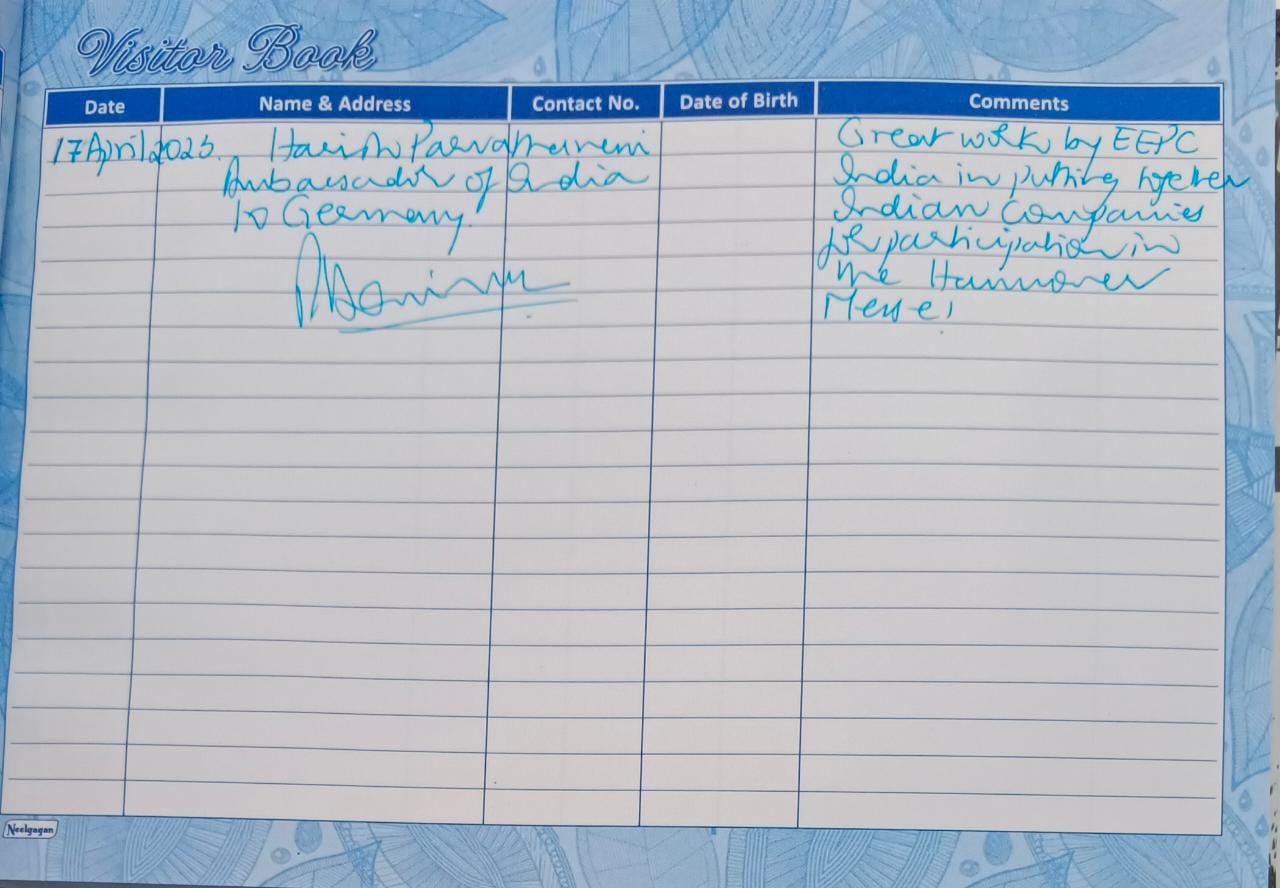 Visitor Book
Date Name & Address Contact No. Date of Birth Comments
17 April 2023. Harish Parvathaneni
Ambassador of India
to Germany
Great work by EEPC
India in putting together
Indian Companies
for participation in
the Hannover
Messe.
Neelgagan